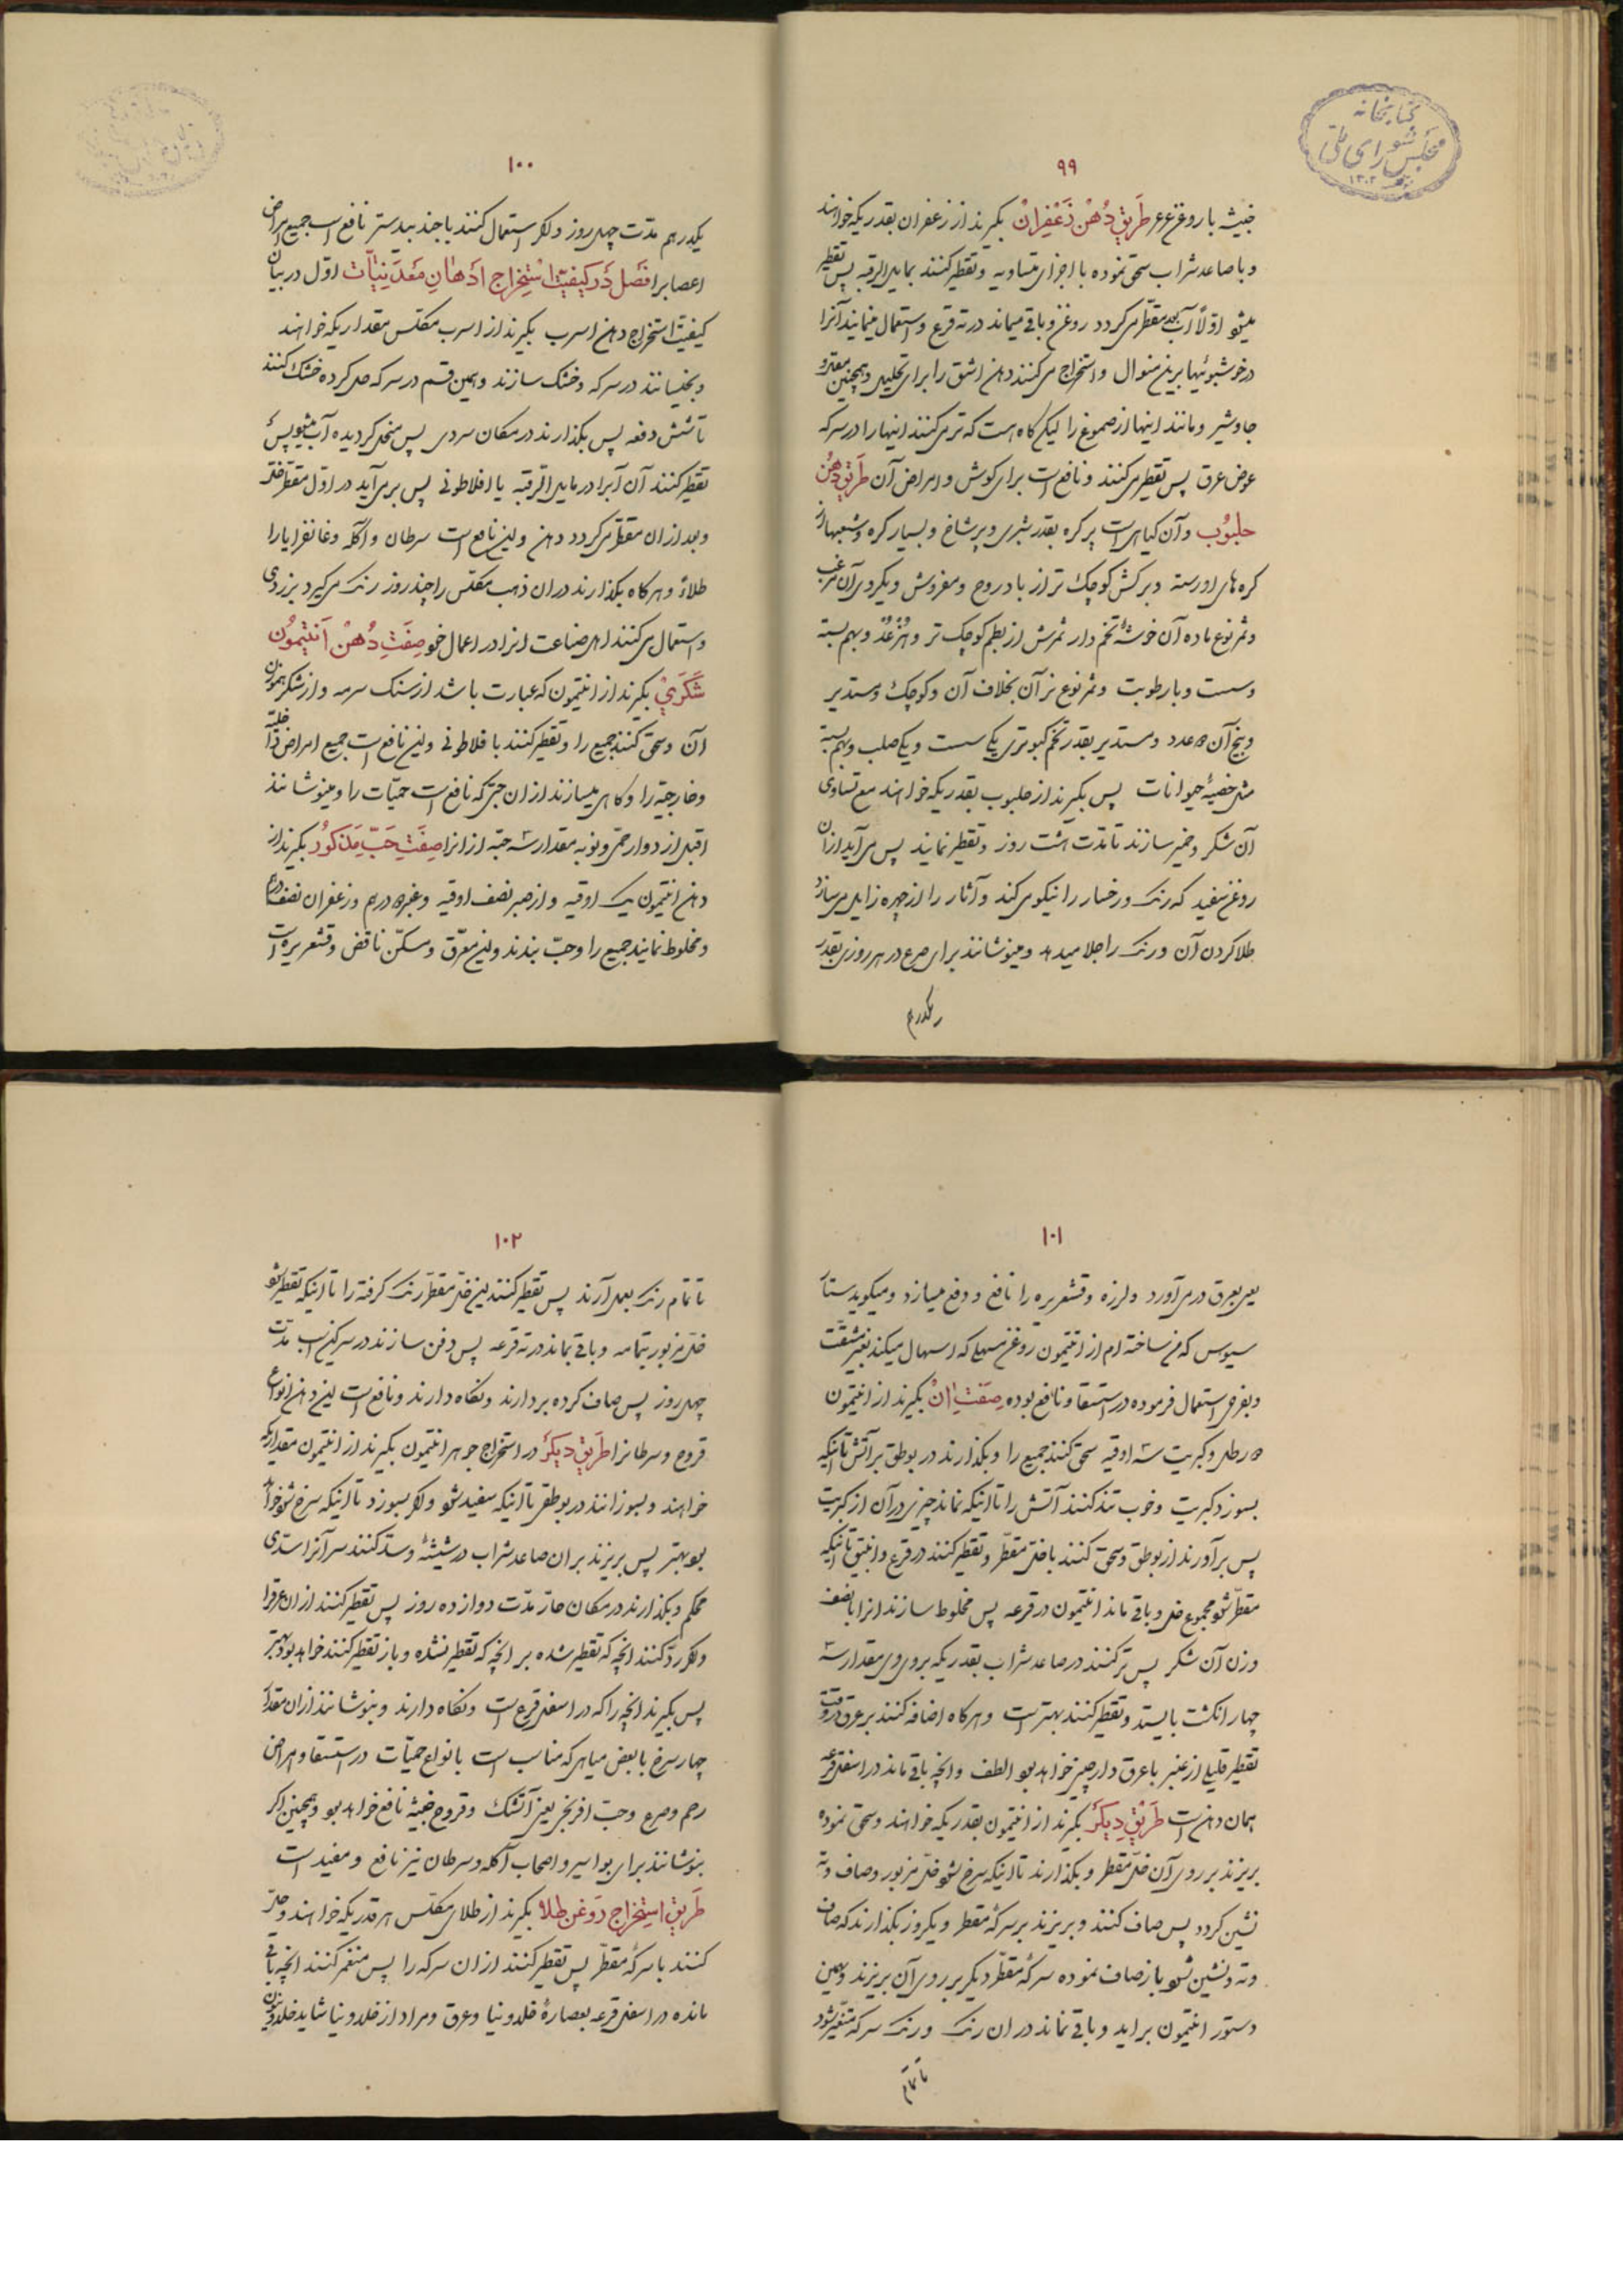 کتابخانه
مجلس شورای ملی
۹۹
خبیثه با روغن عرعر طریق دهن زعفران بگیرند از زعفران بقدریکه خواهند
و با صاعد شراب سحق نموده با اجزای متساویه و تقطیر کنند بمایل الرقبه پس تقطیر
میشود اولا آب بعد مقطر می‌گردد روغن و باقی میماند در ته قرع و استعمال مینمایند آنرا
در خوشبوئیها برین منوال و استخراج می‌کنند دهن اشق را برای تحلیل و همچنین مقل و
جاوشیر و مانند اینها از صموغ را لیکن گاه است که تر می‌کنند اینها را در سرکه
عوض عرق پس تقطیر می‌کنند و نافع است برای گوش و امراض آن طریق دهن
حلبوب و آن گیاهی است پر گره بقدر شبری و پر شاخ و بسیار گره و شعبها از
گره‌های او رسته و برگش کوچک تر از بادروج و مفروش و یکروی آن مزغب
و ثمر نوع ماده آن خوشهٔ تخم دار ثمرش از بطم کوچک تر و مزغب و بهم بسته
و سست و با رطوبت و ثمر نوع نر آن بخلاف آن و کوچک و مستدیر
و بیخ آن ۲ عدد و مستدیر بقدر تخم کبوتری یکی سست و یکی صلب و بهم بسته
مثل خصیهٔ حیوانات پس بگیرند از حلبوب بقدریکه خواهند مع تساوی
آن شکر و خمیر سازند تا مدت هشت روز و تقطیر نمایند پس می‌آید از آن
روغن سفید که رنگ و رخسار را نیکو می‌کند و آثار را از چهره زایل می‌سازد
طلا کردن آن و رنگ را جلا میدهد و مینوشانند برای صرع در هر روزی بقدر
یکدرهم
۱۰۰
یکدرهم مدت چهل روز و اگر استعمال کنند با جندبیدستر نافع است جمیع امراض
اعصابرا فصل در کیفیت استخراج ادهان معدنیات اول در بیان
کیفیت استخراج دهن اسرب بگیرند از اسرب مکلس مقداریکه خواهند
و بخیسانند در سرکه و خشک سازند و بهمین قسم در سرکه حل کرده خشک کنند
تا شش دفعه پس بگذارند در مکان سردی پس منحل گردیده آب میشود پس
تقطیر کنند آن آبرا در مایل الرقبه یا افلاطونی پس برمی‌آید در اول مقطر خل
و بعد از ان مقطر می‌گردد دهن و این نافع است سرطان و آکله و غانغرایا را
طلاءً و هرگاه بگذارند در ان ذهب مکلس را چند روز رنگ می‌گیرد بزردی
و استعمال می‌کنند اهل صناعت انرا در اعمال خود صفت دهن انتیمون
شکری بگیرند از انتیمون که عبارت باشد از سنگ سرمه و از شکر هموزن
آن و سحق کنند جمیع را و تقطیر کنند با فلاطونی و این نافع است جمیع امراض داخلیه
و خارجیه را و گاهی میسازند از ان حبی که نافع است حمیات را و مینوشانند
قبل از دوار حمی و نوبه مقدار سه حبه از انرا صفت حب مذکور بگیرند از
دهن انتیمون یک اوقیه و از صبر نصف اوقیه و عنبر ۲ درهم و زعفران نصف درهم
و مخلوط نمایند جمیع را و حب بندند و این معرق و مسکن نافض و قشعریره است
۱۰۱
یعنی بعرق درمی‌آورد و لرزه و قشعریره را نافع و دفع میسازد و میگوید ستار
سیوس که من ساخته ام از انتیمون روغن مسهلی که اسهال میکند بغیر مشقت
و بفرض استعمال فرموده در استسقا و نافع بوده صفت ان بگیرند از انتیمون
۲ رطل و کبریت سه اوقیه سحق کنند جمیع را و بگذارند در بوطق بر آتش تا اینکه
بسوزد کبریت و خوب تند کنند آتش را تا اینکه نماند چیزی در آن از کبریت
پس برآورند از بوطق و سحق کنند با خل مقطر و تقطیر کنند در قرع و انبیق تا اینکه
مقطر شود مجموع خل و باقی ماند انتیمون در قرعه پس مخلوط سازند انرا با نصف
وزن آن شکر پس تر کنند در صاعد شراب بقدریکه بروی وی مقدار سه
چهار انگشت بایستد و تقطیر کنند بهتر است و هرگاه اضافه کنند بر عرق در وقت
تقطیر قلیلی از عنبر با عرق دارچینی خواهد بود الطف و انچه باقی ماند در اسفل قرعه
همان دهن است طریق دیگر بگیرند از انتیمون بقدریکه خواهند و سحق نموده
بریزند بر روی آن خل مقطر و بگذارند تا اینکه سرخ شود خل مزبور و صاف و ته
نشین گردد پس صاف کنند و بریزند بر سرکهٔ مقطر و یکروز بگذارند که صاف
و ته نشین شود باز صاف نموده سرکهٔ مقطر دیگر بر روی آن بریزند و بهمین
دستور انتیمون براید و باقی نماند در ان رنگ و رنگ سرکه متغیر شود
تا تمام
۱۰۲
تا تمام رنگ بعمل آرند پس تقطیر کنند این خل مقطر رنگ گرفته را تا اینکه تقطیر شود
خل مزبور بتمامه و باقی بماند در ته قرعه پس دفن سازند در سرگین اسب مدت
چهل روز پس صاف کرده بردارند و نگاه دارند و نافع است این دهن انواع
قروح و سرطانرا طریق دیگر در استخراج جوهر انتیمون بگیرند از انتیمون مقداریکه
خواهند و بسوزانند در بوطقه تا اینکه سفید شود و اگر بسوزد تا اینکه سرخ شود خواهد
بود بهتر پس بریزند بر ان صاعد شراب در شیشهٔ و سد کنند سر آنرا سدی
محکم و بگذارند در مکان حار مدت دوازده روز پس تقطیر کنند از ان عرق را
و اگر رد کنند انچه که تقطیر شده بر انچه که تقطیر نشده و باز تقطیر کنند خواهد بود بهتر
پس بگیرند انچه را که در اسفل قرع است و نگاه دارند و بنوشانند از ان مقدار
چهار سرخ با بعض میاهی که مناسب است بانواع حمیات در استسقا و امراض
رحم و صرع و حب افرنجی یعنی آتشک و قروح خبیثه نافع خواهد بود و همچنین اگر
بنوشانند برای بواسیر و اصحاب آکله و سرطان نیز نافع و مفید است
طریق استخراج روغن طلا بگیرند از طلای مکلس هر قدریکه خواهند و حل
کنند با سرکهٔ مقطر پس تقطیر کنند از ان سرکه را پس منغمر کنند انچه باقی
مانده در اسفل قرعه بعصارهٔ خلدونیا و عرق و مراد از خلدونیا شاید خلدونیون